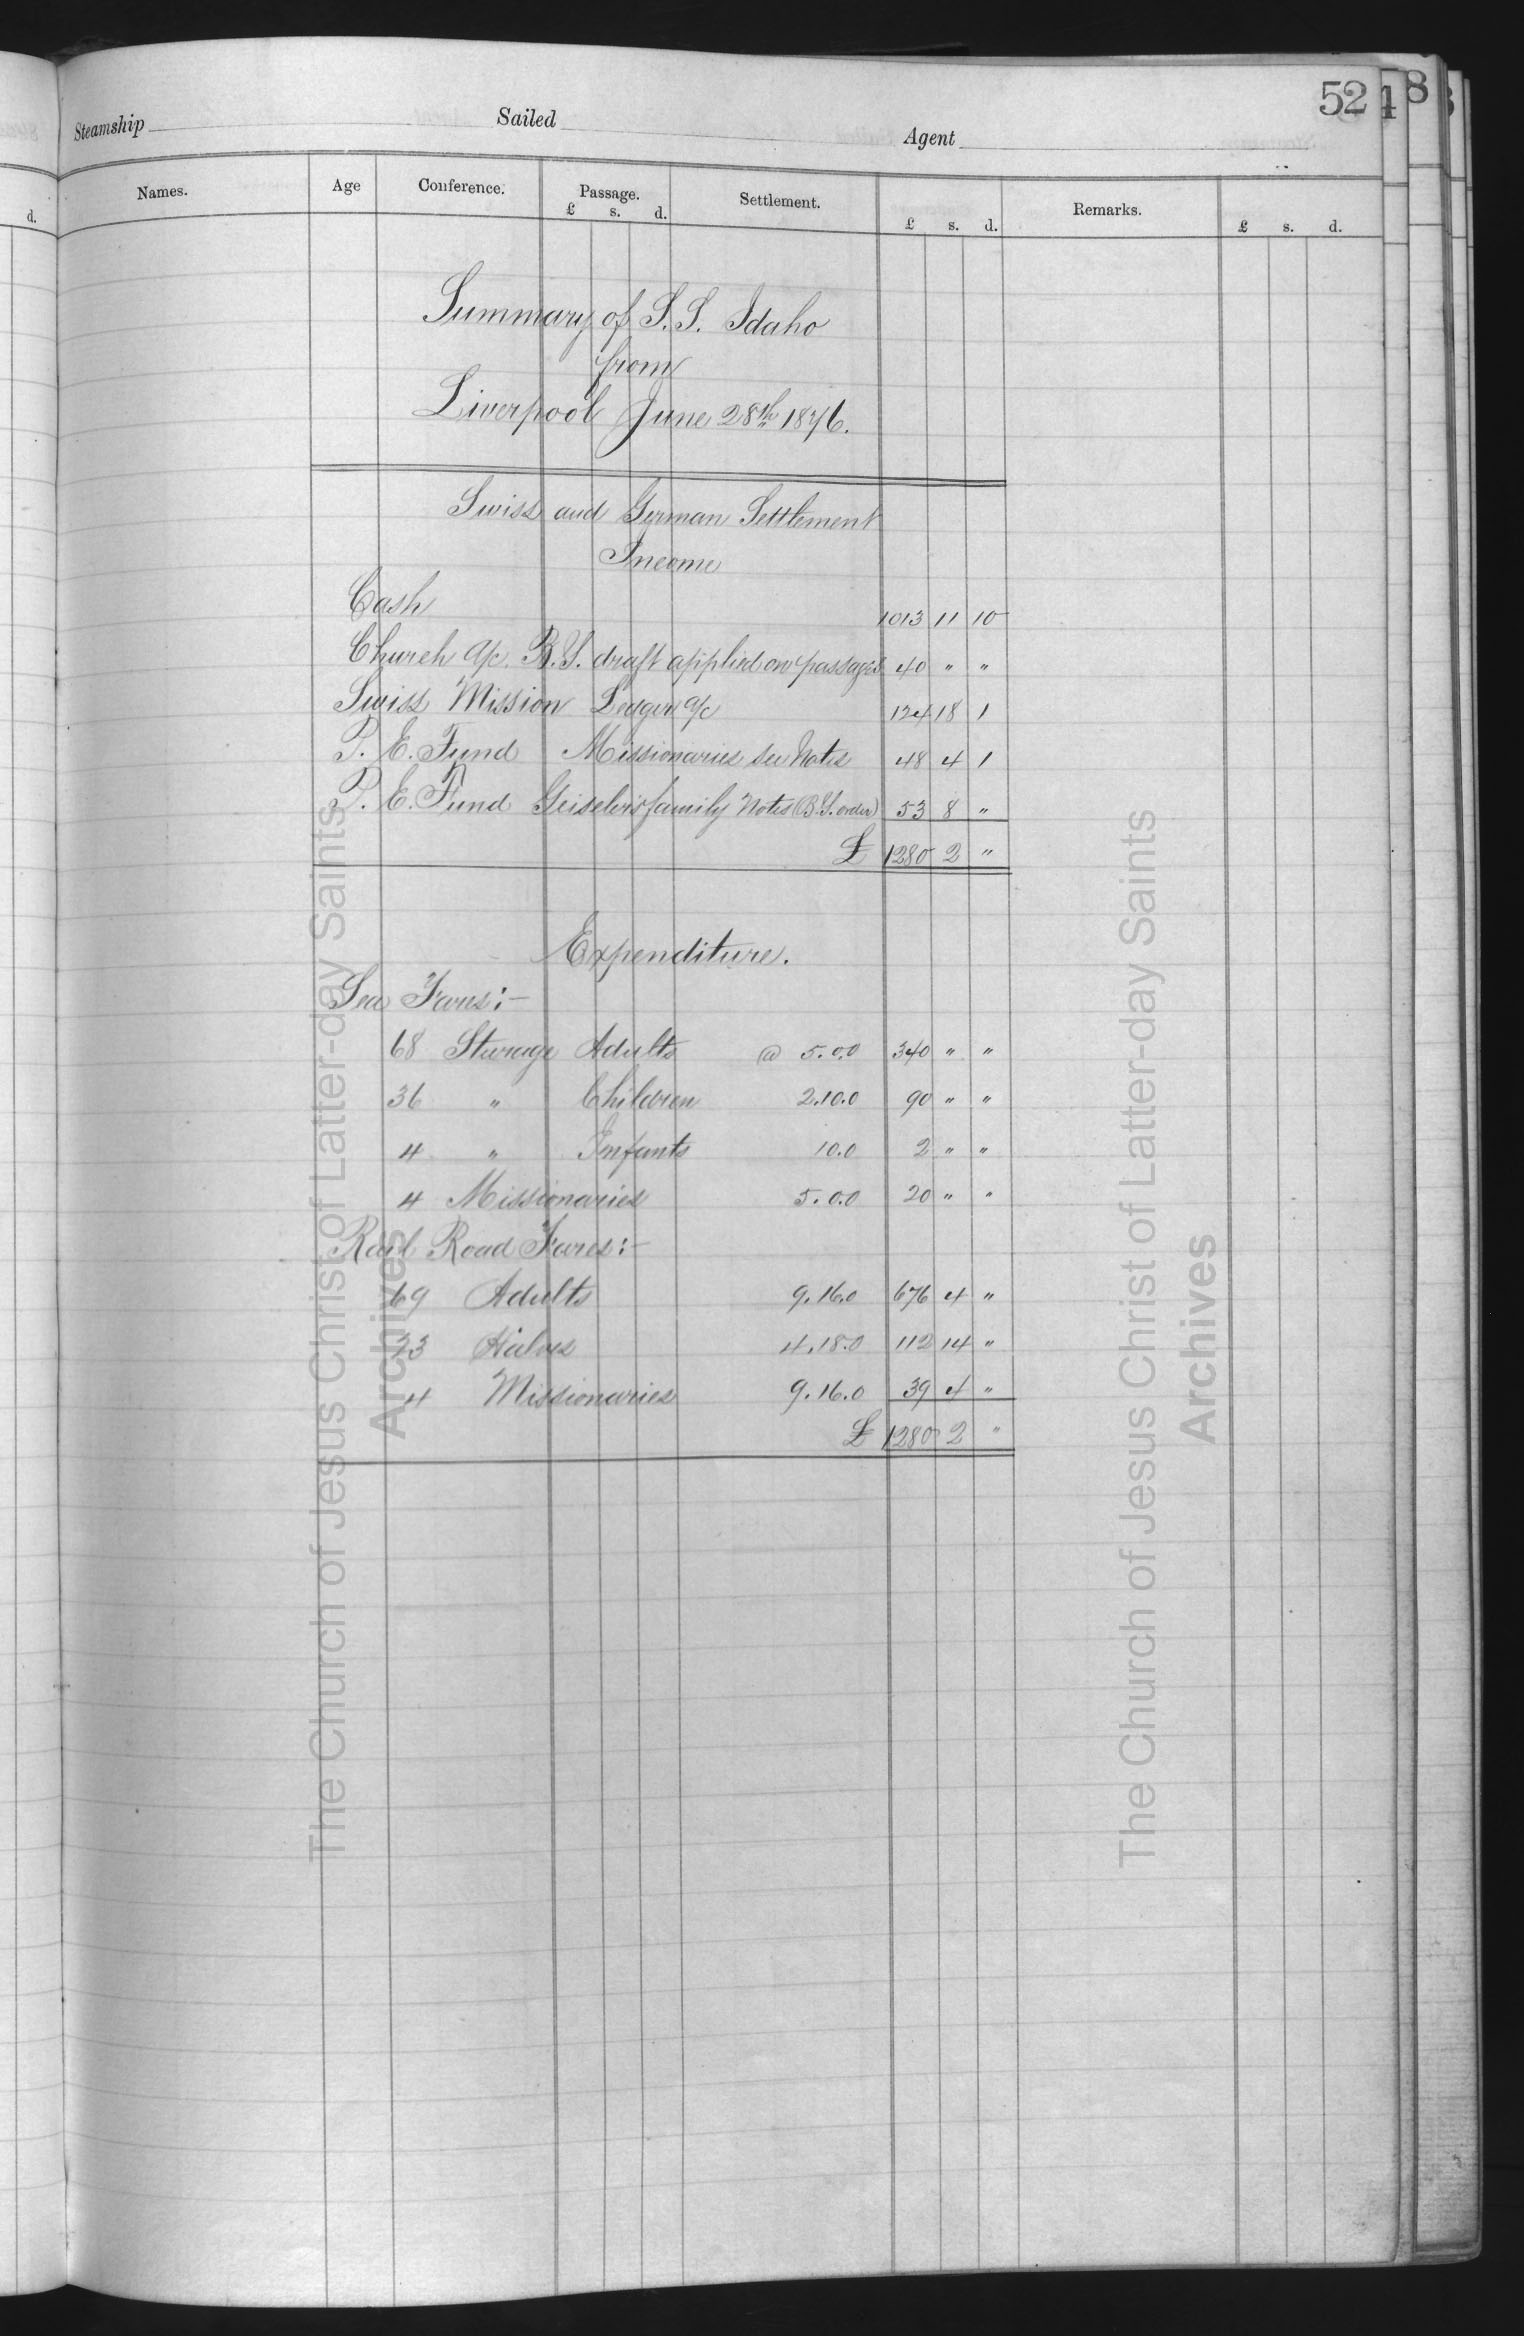 52
4
8
Steamship Sailed Agent
d.
Names. Age Conference. Passage. Settlement. Remarks.
£ s. d. £ s. d. £ s. d.
Summary of S.S. Idaho
from
Liverpool June 28th 1876.
Swiss and German Settlement
Income
Cash 1013 11 10
Church a/c. B.Y. draft applied on passages 40 " "
Swiss Mission Ledger a/c 124 18 1
P. E. Fund Missionaries see Notes 48 4 1
P. E. Fund Geisler's family Notes (B.Y. order) 53 8 "
£ 1280 2 "
Expenditure.
Sea Fares:-
68 Steerage Adults @ 5.0.0 340 " "
36 " Children 2.10.0 90 " "
4 " Infants 10.0 2 " "
4 Missionaries 5.0.0 20 " "
Rail Road Fares:-
69 Adults 9.16.0 676 4 "
23 Halves 4.18.0 112 14 "
4 Missionaries 9.16.0 39 4 "
£ 1280 2 "
The Church of Jesus Christ of Latter-day Saints
Archives
The Church of Jesus Christ of Latter-day Saints
Archives